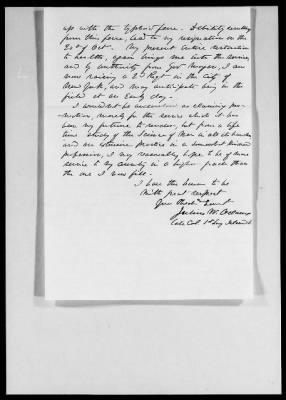 up with the typhoid fever. Debility resulting
from this fever, led to my resignation on the
of Oct. My present entire restoration
to health, again brings me into the service,
and by authority from Gov. Morgan, I am
now raising a 2d Regt in the City of
New York, and may anticipate being in the
field at an early day.
I would not be as claiming pro-
motion, merely for the service which it has
been my fortune to render, but from a life
time study of the Science of War in all its branches
and an extensive practice in a somewhat kindred
profession, I may reasonably hope to be of more
service to my country in a higher grade than
the one I now fill.
I have the honor to be
With great respect
Your Obedt. Servt
Julius W.
Late Col. 1st